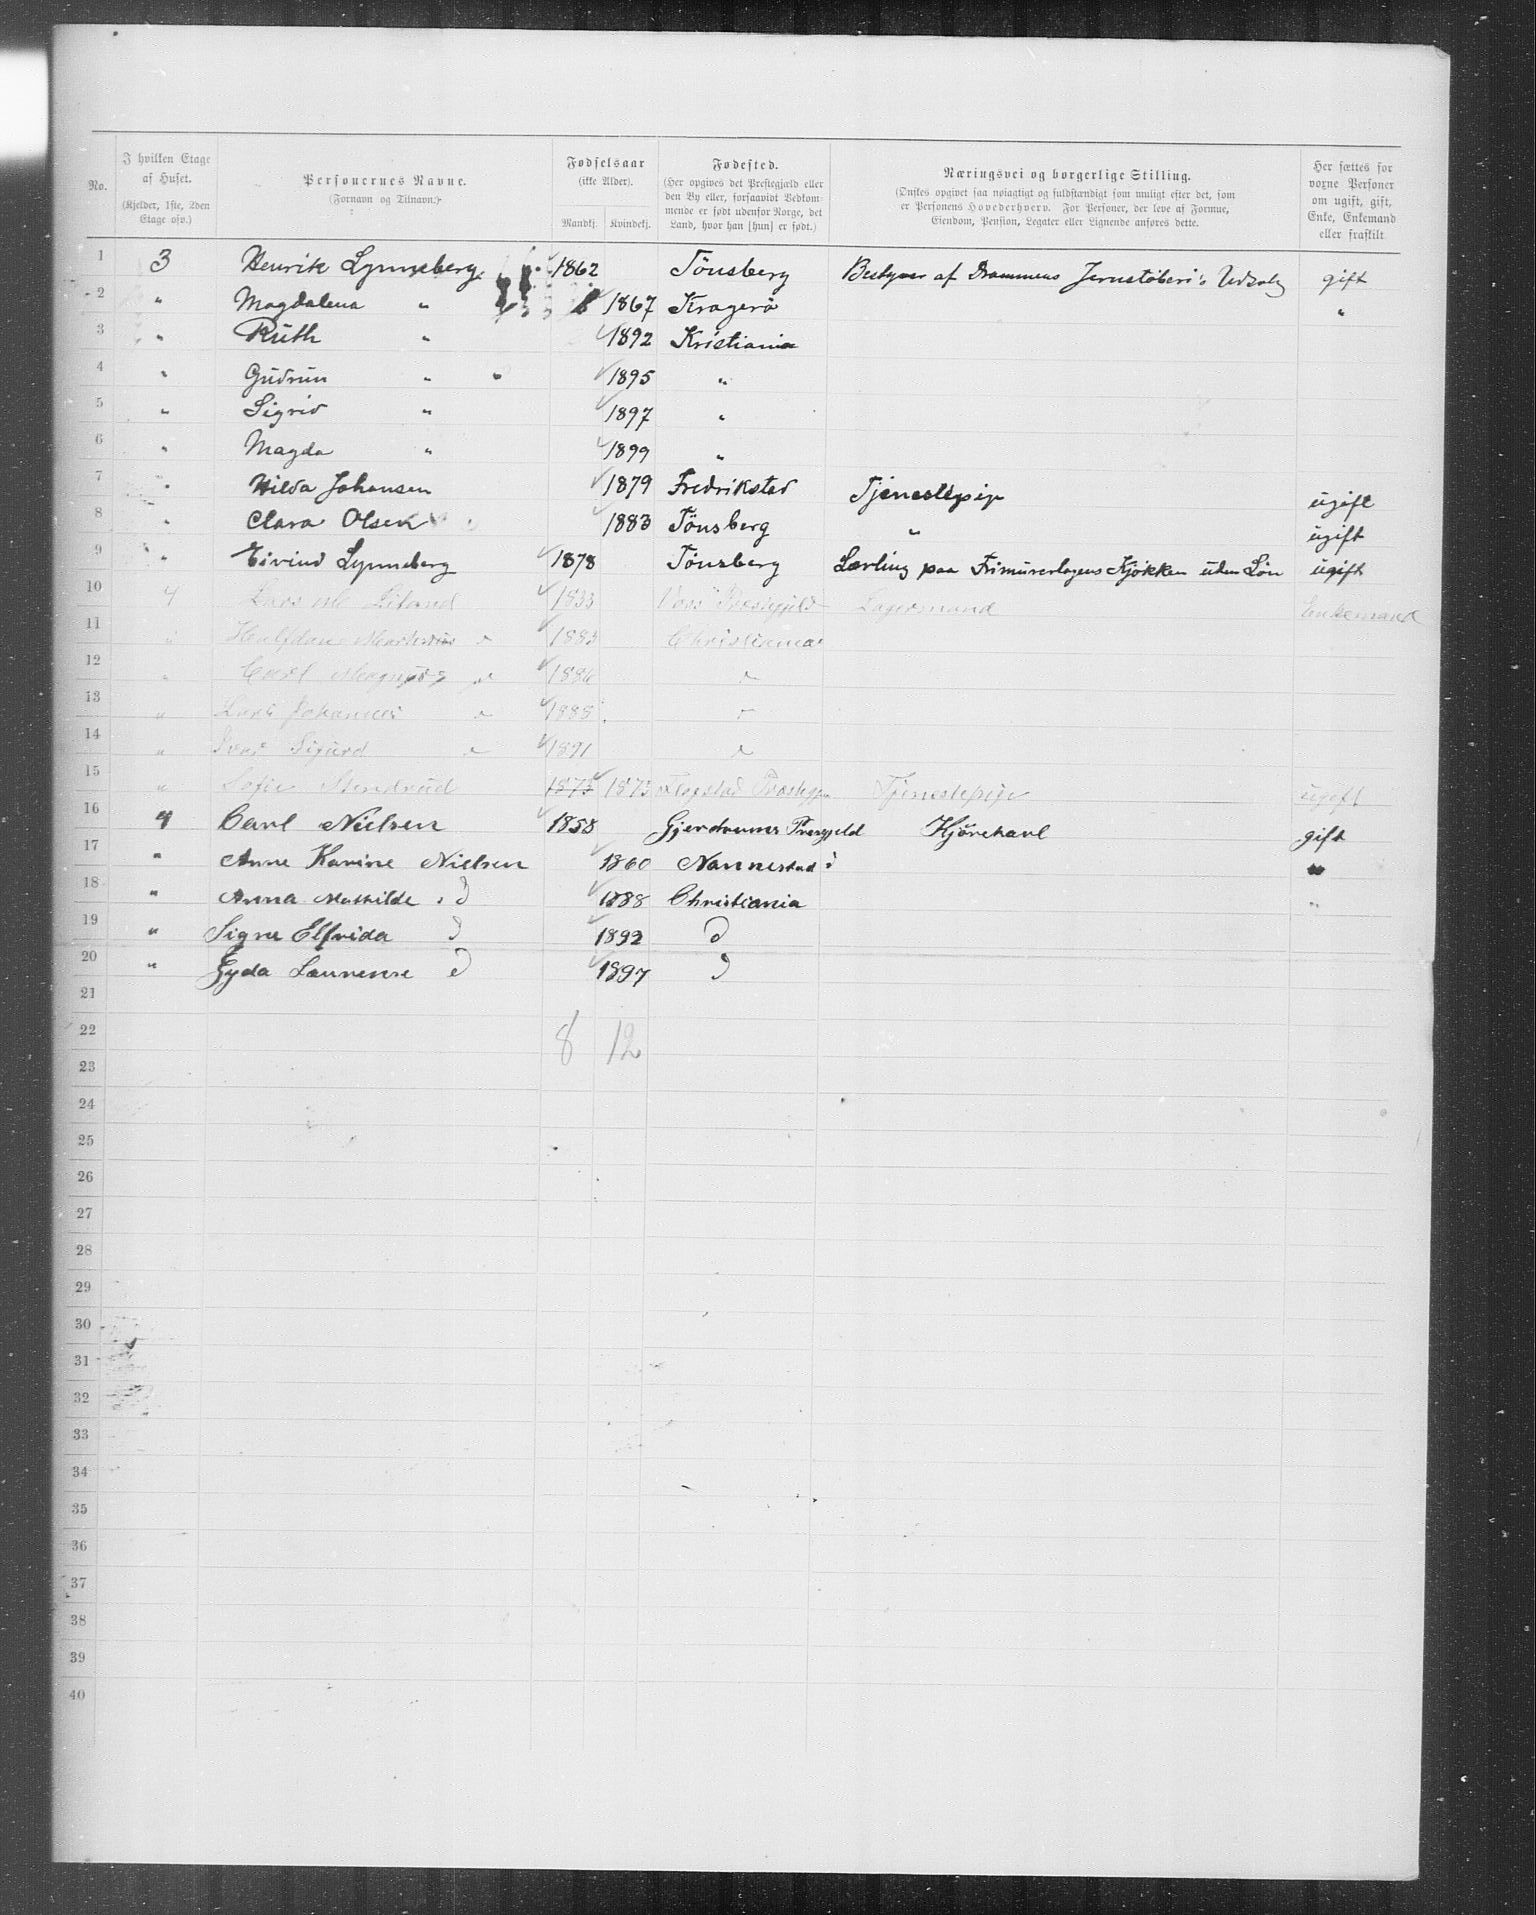 No. | I hvilken Etage af Huset. (Kjelder, 1ste, 2den Etage osv.) | Personernes Navne. (Fornavn og Tilnavn.) | Fødselsaar (ikke Alder). Mandkj. | Kvindekj. | Fødested. (Her opgives det Prestegjæld eller den By eller, forsaavidt Vedkommende er født udenfor Norge, det Land, hvor han [hun] er født.) | Næringsvei og borgerlige Stilling. (Ønskes opgivet saa nøiagtigt og fuldstændigt som muligt efter det, som er Personens Hovederhverv. For Personer, der leve af Formue, Eiendom, Pension, Legater eller Lignende anføres dette. | Her sættes for voxne Personer om ugift, gift, Enke, Enkemand eller fraskilt
1 3 Henrik Lynneberg 1862 Tönsberg Bestyrer af Drammens Jernstöberi's Udsalg gift
2 " Magdalena " 1867 Kragerö "
3 " Ruth " 1892 Kristiania
4 " Gudrun " 1895 "
5 " Sigrid " 1897 "
6 " Magda " 1899 "
7 " Hilda Johansen 1879 Fredrikstad Tjenestepige ugift
8 " Clara Olsen 1883 Tönsberg " ugift
9 " Eivind Lynneberg 1878 Tönsberg Lærling paa Frimurerlogens Kjökken uden Lön ugift
10 4 Lars 1833 Voss Lagermand Enkemand
11 " Halfdan " 1883 Christiania
12 " Carl Magnus " 1886 "
13 " Lars Johannes " 1888 "
14 " Sigurd " 1891 "
15 " Sofie 1873 1873 Tjenestepige ugift
16 4 Carl Nielsen 1858 Kjörekarl gift
17 " Anne Karine Nielsen 1860 Nannestad "
18 " Anna Mathilde d 1888 Christiania "
19 " Signe Elfrida d 1892 d
20 " Gyda Laurense d 1897 d
21
22 8 12
23
24
25
26
27
28
29
30
31
32
33
34
35
36
37
38
39
40